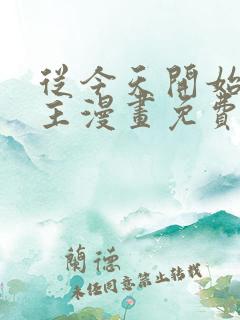 從今天開始
王漫畫免費
蘭德
未經同意禁止轉載